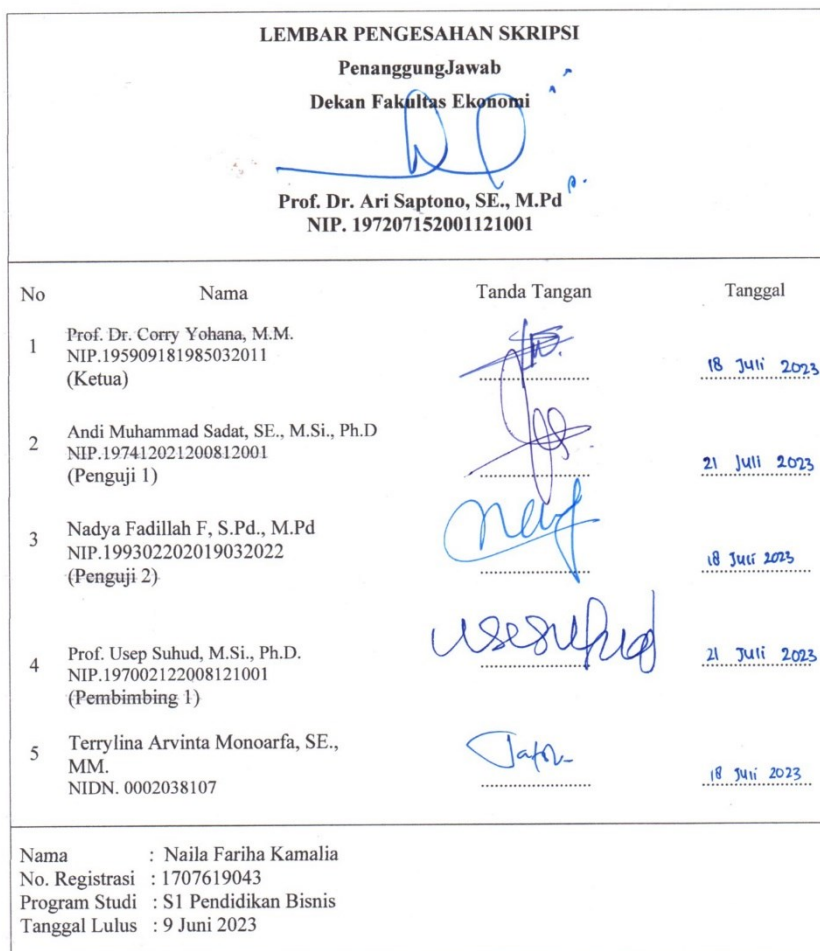 LEMBAR PENGESAHAN SKRIPSI
PenanggungJawab
Dekan Fakultas Ekonomi
Prof. Dr. Ari Saptono, SE., M.Pd
NIP. 197207152001121001
No Nama Tanda Tangan Tanggal
1 Prof. Dr. Corry Yohana, M.M.
NIP.195909181985032011
(Ketua)
18 Juli 2023
2 Andi Muhammad Sadat, SE., M.Si., Ph.D
NIP.197412021200812001
(Penguji 1)
21 Juli 2023
3 Nadya Fadillah F, S.Pd., M.Pd
NIP.199302202019032022
(Penguji 2)
18 Juli 2023
4 Prof. Usep Suhud, M.Si., Ph.D.
NIP.197002122008121001
(Pembimbing 1)
21 Juli 2023
5 Terrylina Arvinta Monoarfa, SE.,
MM.
NIDN. 0002038107
18 Juli 2023
Nama : Naila Fariha Kamalia
No. Registrasi : 1707619043
Program Studi : S1 Pendidikan Bisnis
Tanggal Lulus : 9 Juni 2023